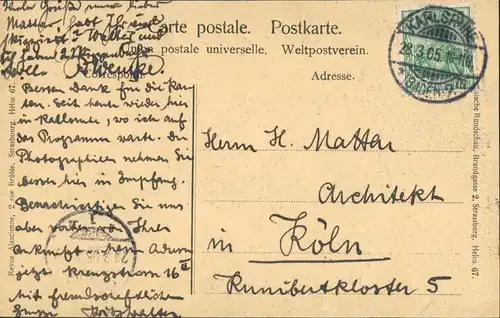 Viele Grüße mein lieber
Mattar, habt Ihr viel
Carte postale. Postkarte.
Union postale universelle. Weltpostverein.
Correspon
Adresse.
KARLSRUHE
28.3.05
(BADEN)
Besten Dank für die Kar-
ten. Seit heute wieder hier
in Karlsruhe, wo ich auf
das Programm warte. Die
Photographieen nehmen Sie
besser hier in Empfang.
Benachrichtigen Sie uns
aber vorher von Ihrer
Ankunft. Adresse
jetzt Kreuzstrasse 16 II
Mit freundschaftlichem
Gruss Fritz Walter
Herrn H. Mattar
Architekt
in Köln
Kunibertskloster 5
Revue Alsacienne, 2 rue Brûlée, Strasbourg. Hélio 67.
Rundschau, Brandgasse 2, Strassburg. Hélio 67.